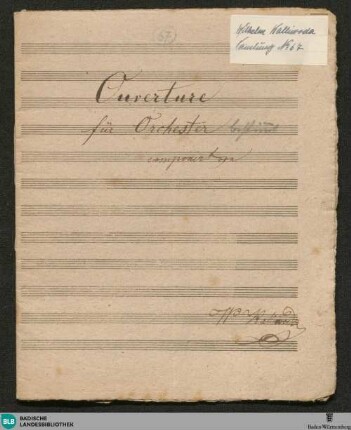 Wilhelm Kalliwoda
Samlung No 62
Ouverture
für Orchester
componirt von
BLB BADISCHE
LANDESBIBLIOTHEK
Baden-Württemberg